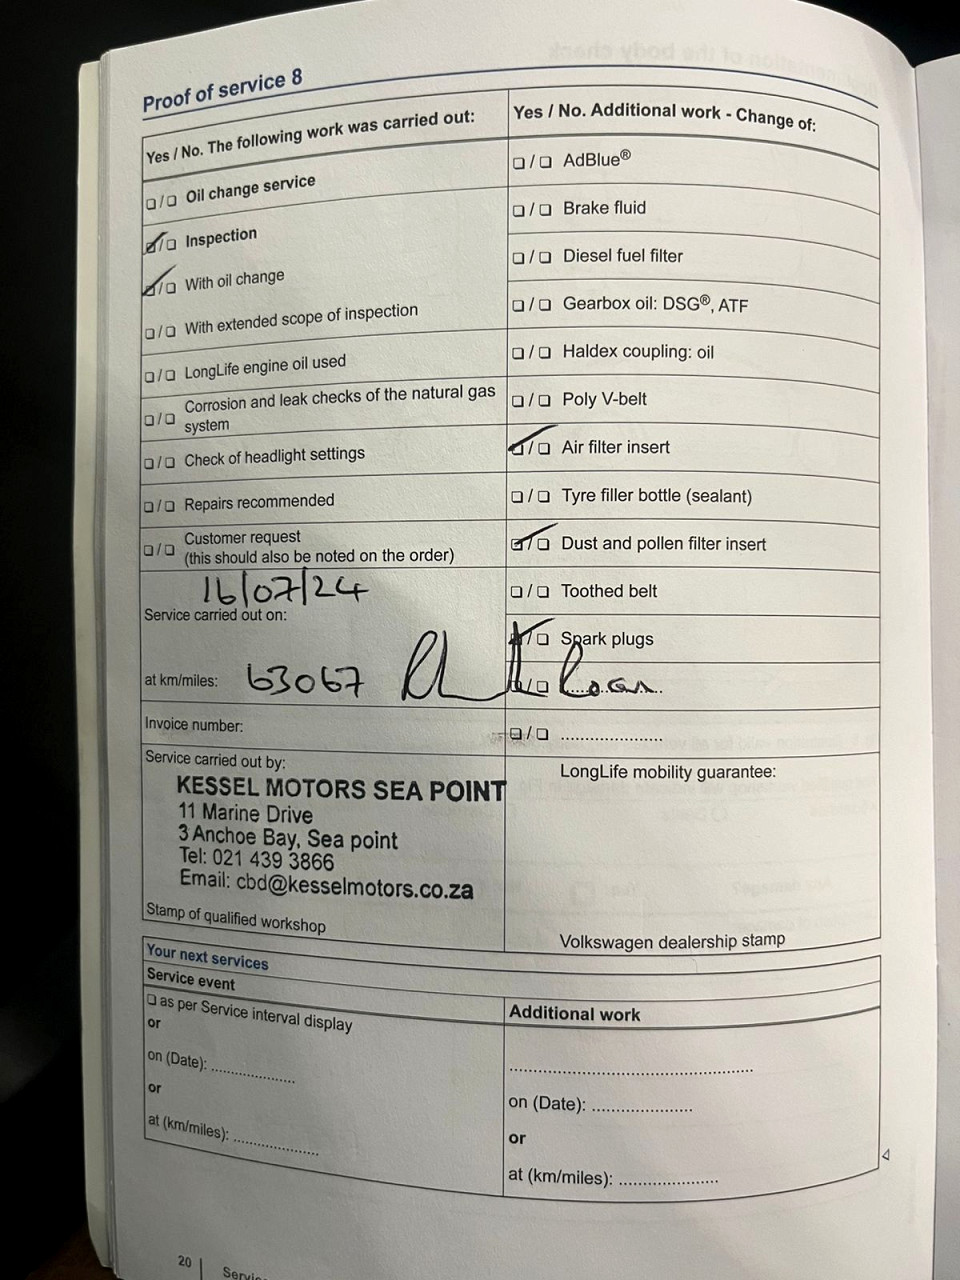 Proof of service 8
Yes / No. The following work was carried out:
☐/☐ Oil change service
☑/☐ Inspection
☑/☐ With oil change
☐/☐ With extended scope of inspection
☐/☐ LongLife engine oil used
☐/☐ Corrosion and leak checks of the natural gas
system
☐/☐ Check of headlight settings
☐/☐ Repairs recommended
☐/☐ Customer request
(this should also be noted on the order)
16/07/24
Service carried out on:
at km/miles: 63067
Invoice number:
Service carried out by:
KESSEL MOTORS SEA POINT
11 Marine Drive
3 Anchoe Bay, Sea point
Tel: 021 439 3866
Email: cbd@kesselmotors.co.za
Stamp of qualified workshop
Yes / No. Additional work - Change of:
☐/☐ AdBlue®
☐/☐ Brake fluid
☐/☐ Diesel fuel filter
☐/☐ Gearbox oil: DSG®, ATF
☐/☐ Haldex coupling: oil
☐/☐ Poly V-belt
☑/☐ Air filter insert
☐/☐ Tyre filler bottle (sealant)
☑/☐ Dust and pollen filter insert
☐/☐ Toothed belt
☑/☐ Spark plugs
☐/☐ ....................
☐/☐ ....................
LongLife mobility guarantee:
Volkswagen dealership stamp
Your next services
Service event
☐ as per Service interval display
or
on (Date): ................
or
at (km/miles): ................
Additional work
................................................
on (Date): ....................
or
at (km/miles): ....................
20